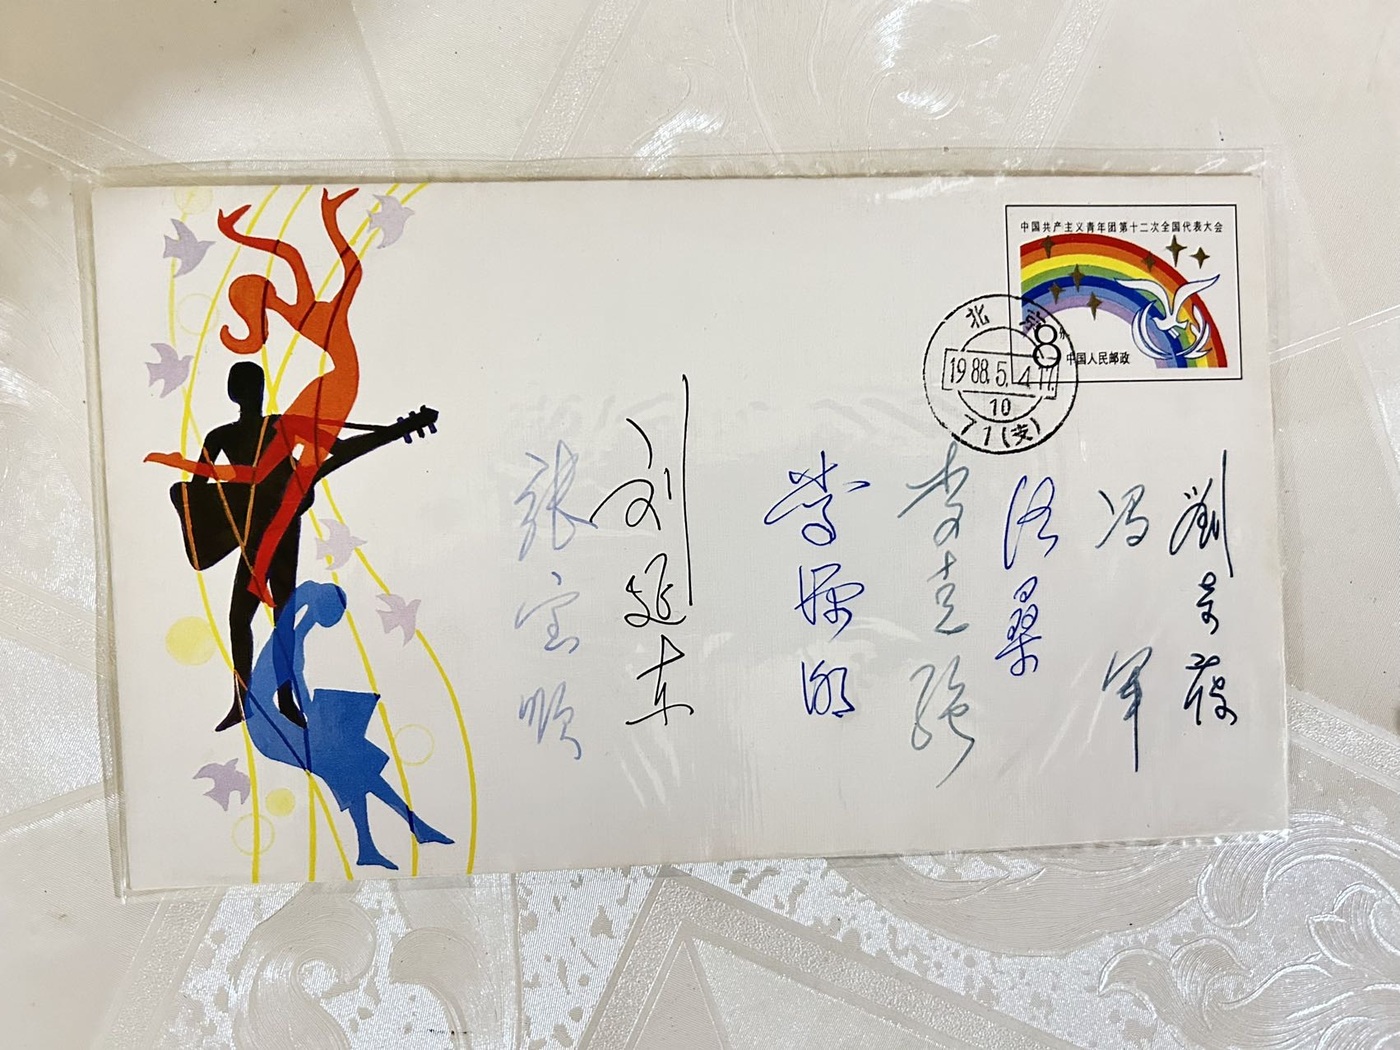 中国共产主义青年团第十二次全国代表大会
8分
中国人民邮政
北京
1988.5.4.17
10
71(支)
張宝顺
刘延东
李源潮
李克强
洛桑
冯军
劉奇葆